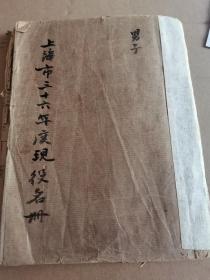 男子
上海市三十六年度現役名冊